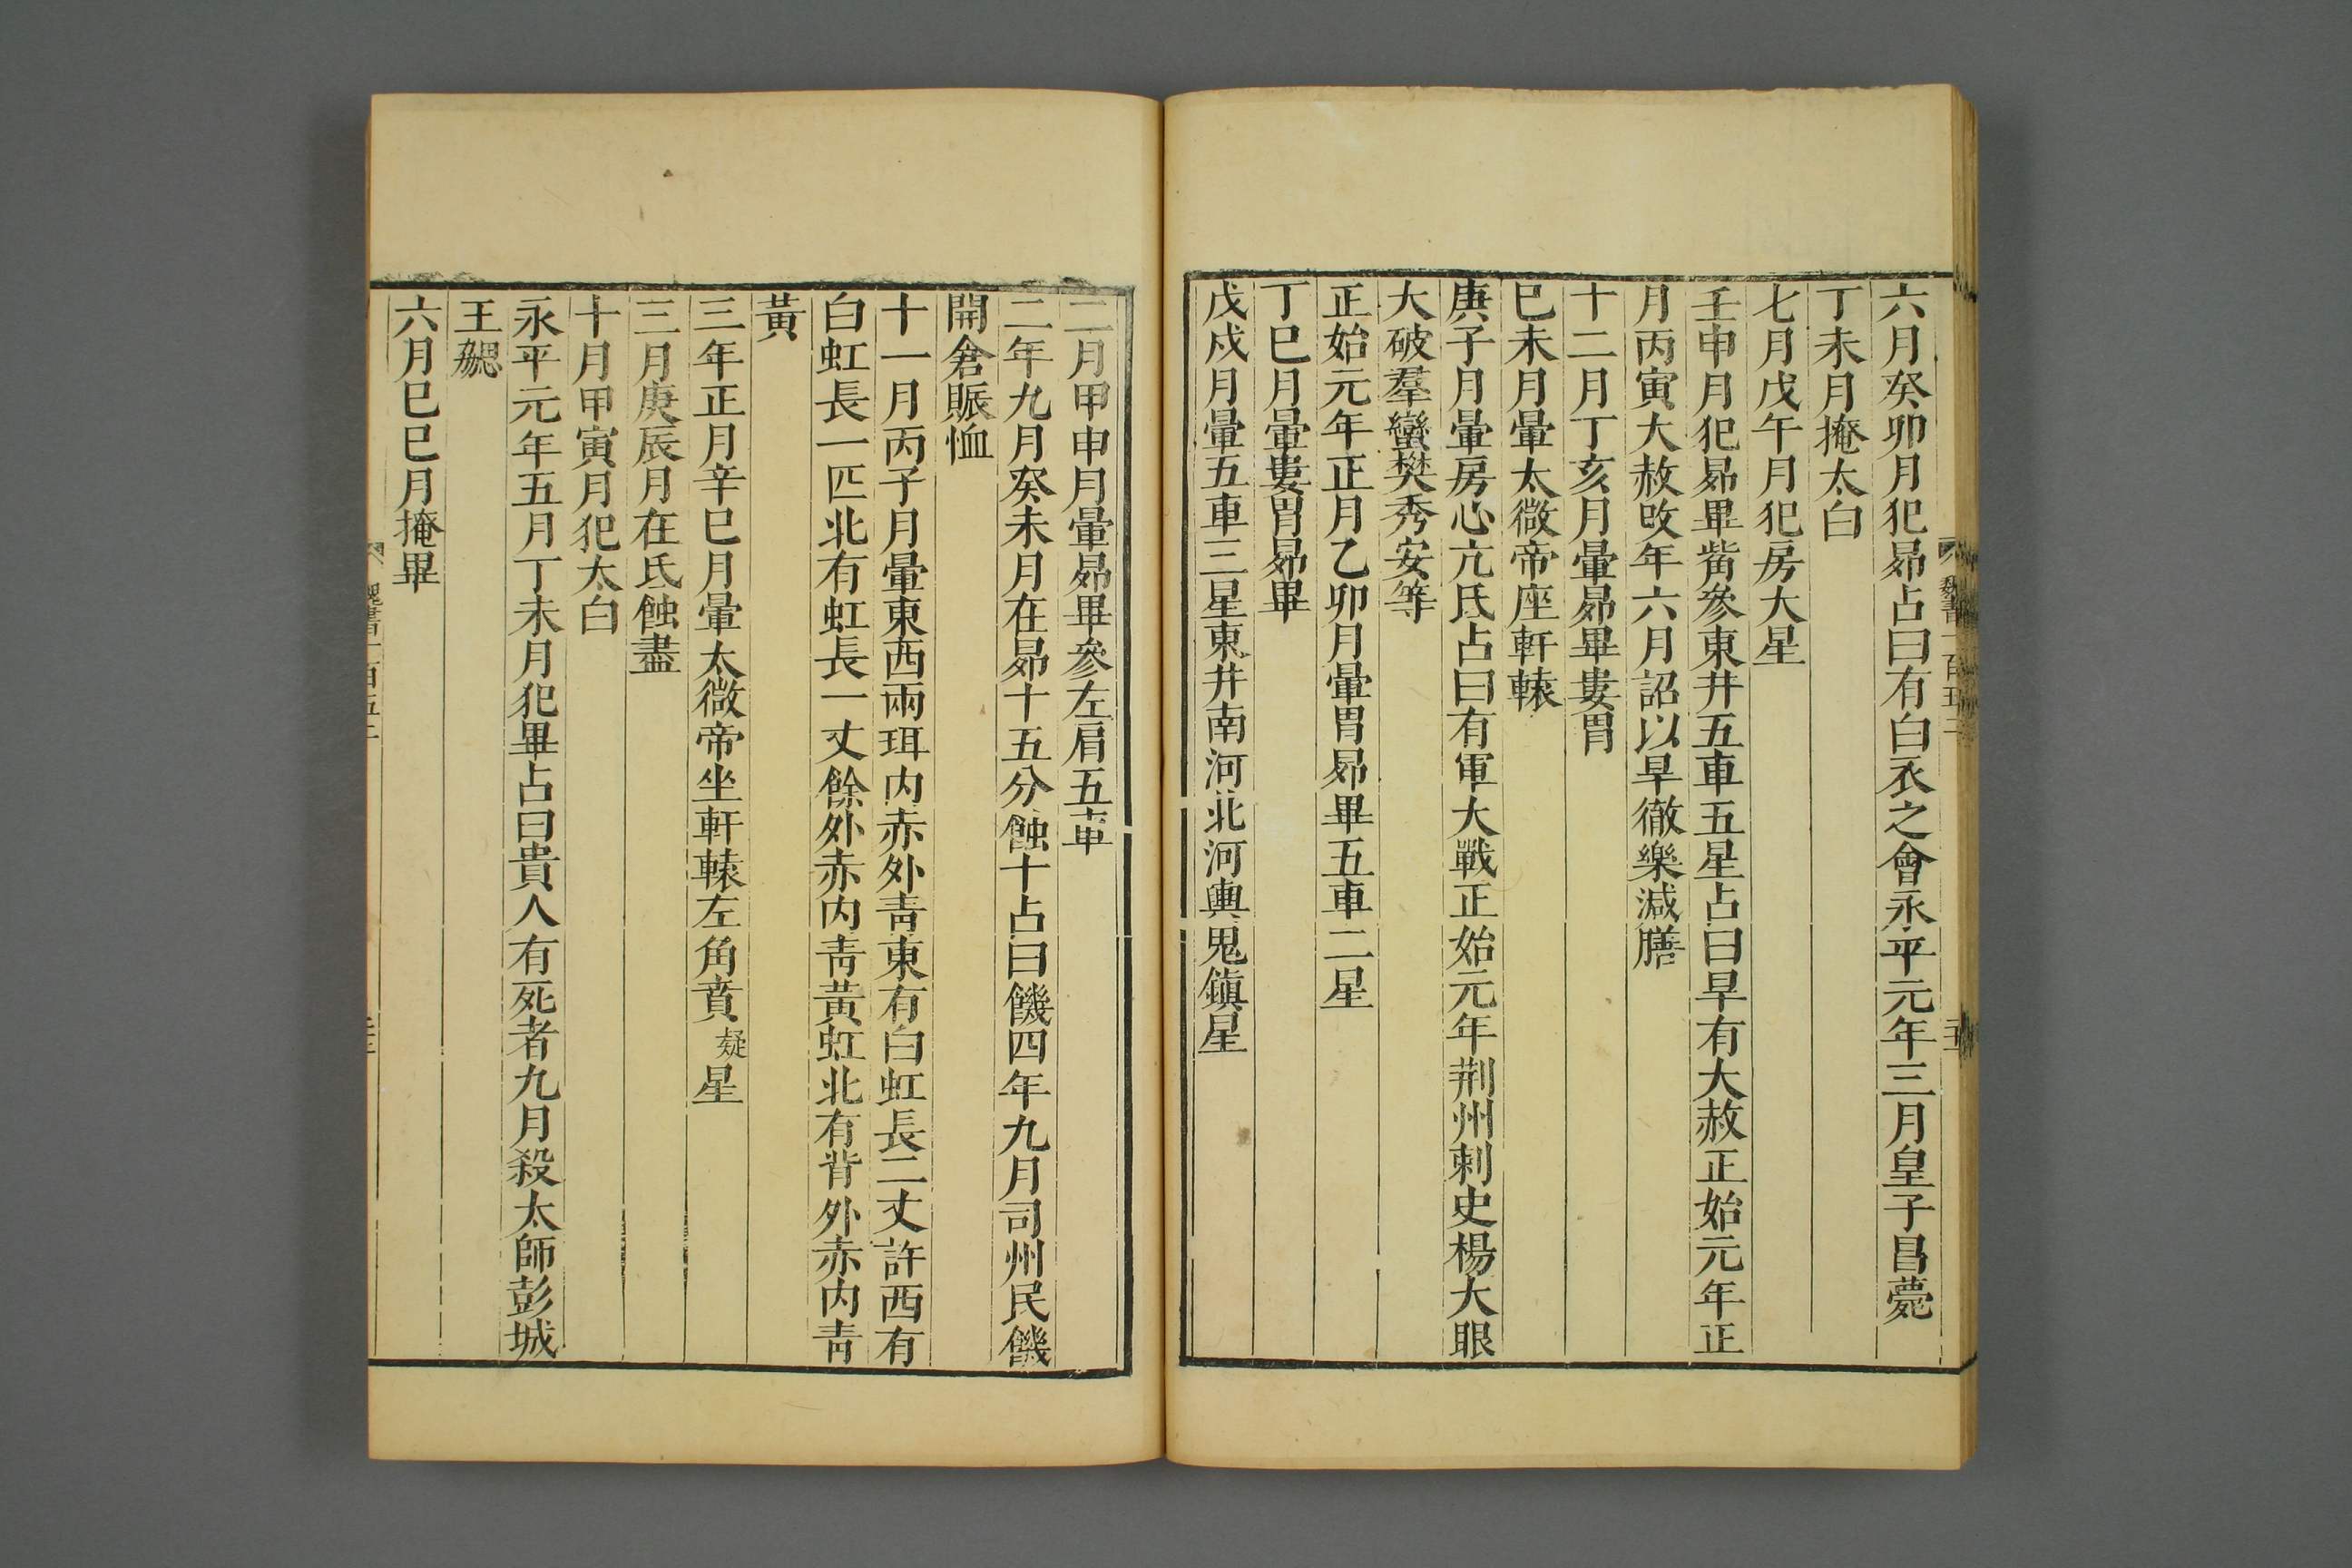 六月癸卯月犯昴占曰有白衣之會永平元年三月皇子昌薨
丁未月掩太白
七月戊午月犯房大星
壬申月犯昴畢觜參東井五車五星占曰旱有大赦正始元年正
月丙寅大赦改年六月詔以旱徹樂減膳
十二月丁亥月暈昴畢婁胃
巳未月暈太微帝座軒轅
庚子月暈房心亢氐占曰有軍大戰正始元年荆州刺史楊大眼
大破羣蠻樊秀安等
正始元年正月乙卯月暈胃昴畢五車二星
丁巳月暈婁胃昴畢
戊戍月暈五車三星東井南河北河輿鬼鎮星
二月甲申月暈昴畢參左肩五車
二年九月癸未月在昴十五分蝕十占曰饑四年九月司州民饑
開倉賑恤
十一月丙子月暈東西兩珥内赤外青東有白虹長二丈許西有
白虹長一匹北有虹長一丈餘外赤内青黃虹北有背外赤内青
黃
三年正月辛巳月暈太微帝坐軒轅左角賁疑星
三月庚辰月在氐蝕盡
十月甲寅月犯太白
永平元年五月丁未月犯畢占曰貴人有死者九月殺太師彭城
王勰
六月巳巳月掩畢
魏書一百五二